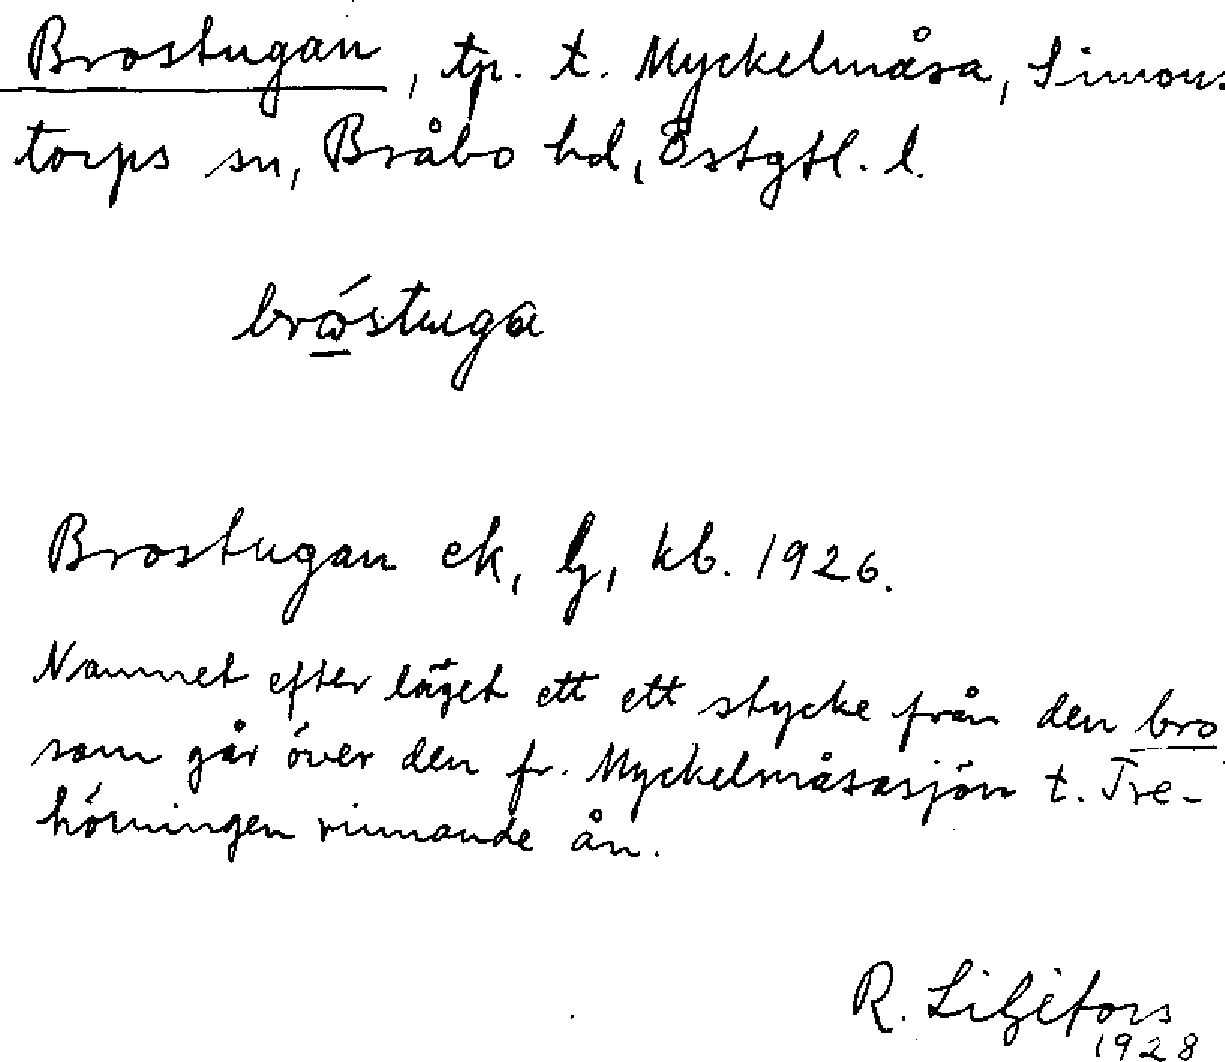 Brostugan, tp. t. Myckelmåsa, Simons-
torps sn, Bråbo hd, Östgtl. l.
bróstuga
Brostugan ek, lj, kb. 1926.
Namnet efter läget ett ett stycke från den bro
som går över den fr. Myckelmåsasjön t. Tre-
hörningen rinnande ån.
R. Liljefors
1928